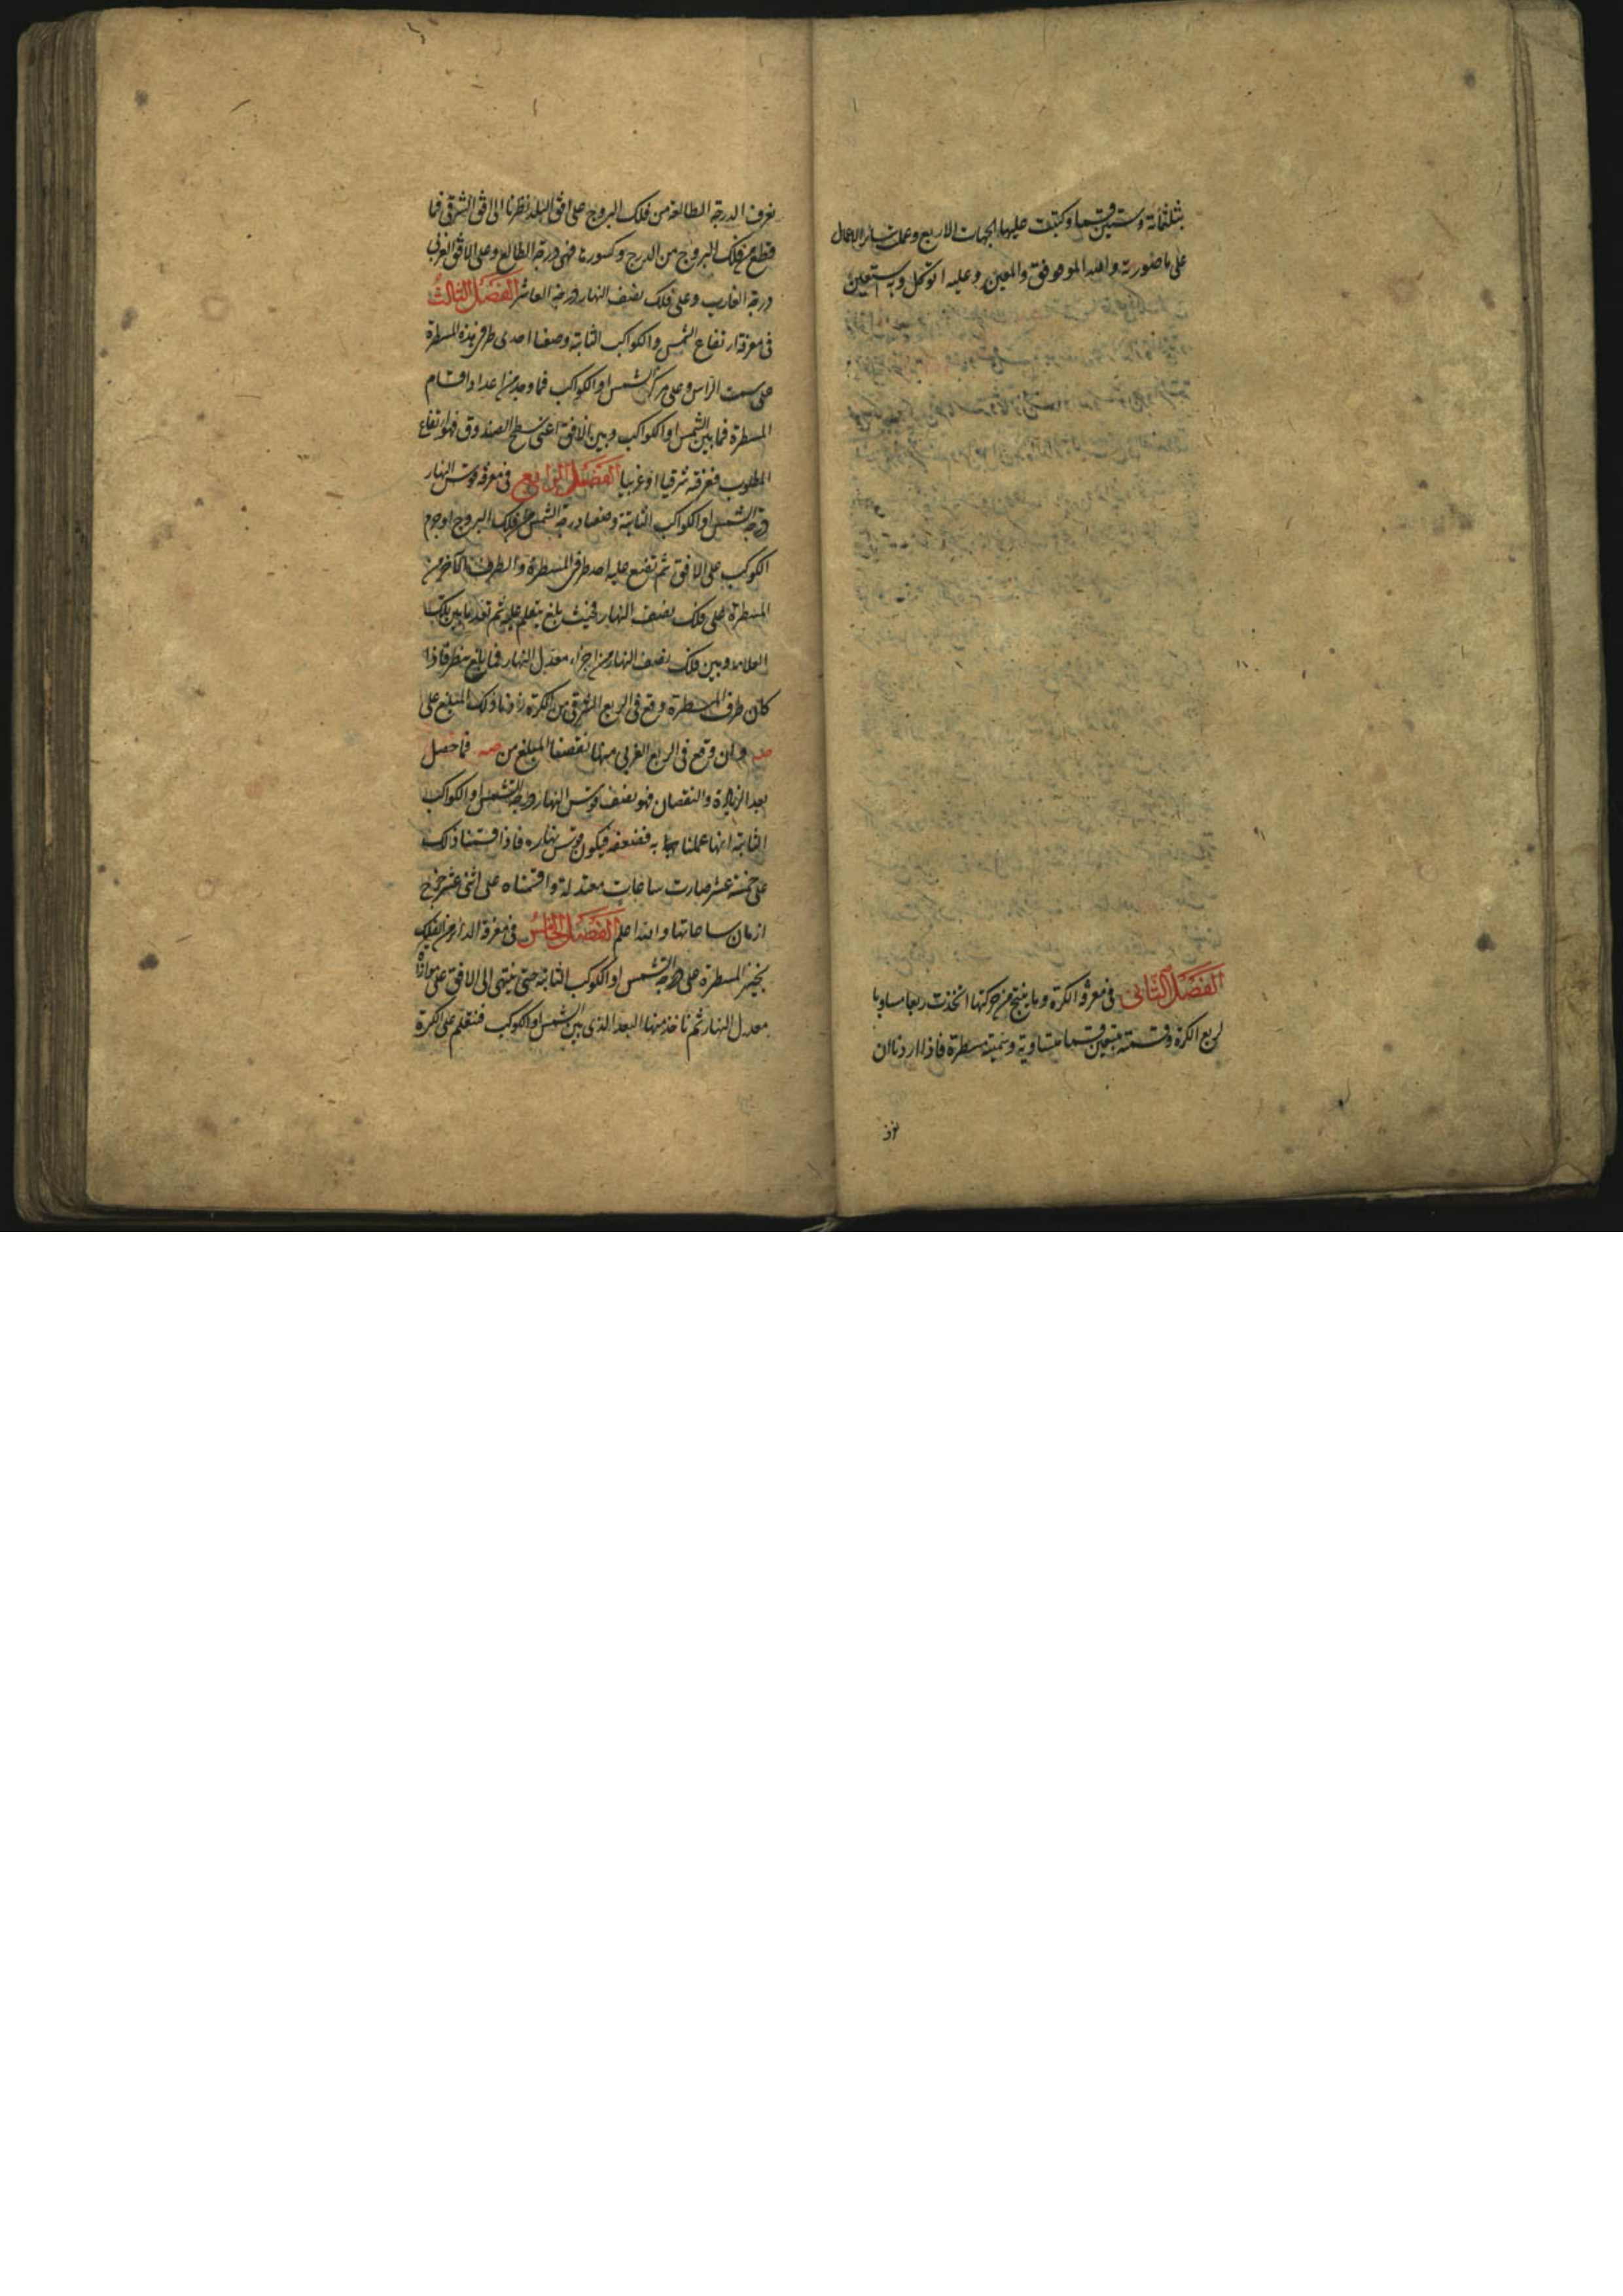 بثلثمائة وستين قسما وكتبت عليها الجهات الاربع وعملت سائر الاعمال
على ما صورته والله الموفق والمعين وعليه اتوكل وبه استعين
الفصل الثانى فى معرفة الكرة وما ينتج من حركتها اتخذت ربعا مساويا
لربع الكرة وقسمته بتسعين قسما متساوية وسميته مسطرة فاذا اردنا ان
نعرف
نعرف الدرجة الطالعة من فلك البروج على افق البلد نظرنا الى افق الشرقى فما
قطع من فلك البروج من الدرج وكسورها فهى درجة الطالع وعلى الافق الغربى
درجة الغارب وعلى فلك نصف النهار درجة العاشر الفصل الثالث
فى معرفة ارتفاع الشمس والكواكب الثابتة وضعنا احدى طرفى هذه المسطرة
على سمت الراس وعلى مركز الشمس او الكواكب فما وجد من اعداد اقسام
المسطرة فما بين الشمس او الكواكب وبين الافق اعنى سطح الصندوق فهو ارتفاع
المطلوب فعرفته شرقيا او غربيا الفصل الرابع فى معرفة قوس النهار
درجة الشمس او الكواكب الثابتة وضعنا درجة الشمس من فلك البروج او جرم
الكوكب على الافق ثم تضع عليه احد طرفى المسطرة والطرف الآخر من
المسطرة على فلك نصف النهار فحيث بلغ يتعلم عليه ثم تعد ما بين تلك
العلامة وبين فلك نصف النهار من اجزاء معدل النهار فما بلغ ينظر فاذا
كان طرف المسطرة وقع فى الربع الشرقى من الكرة زدنا ذلك المبلغ على
صه وان وقع فى الربع الغربى منها نقصنا المبلغ من صه فما حصل
بعد الزيادة والنقصان فهو نصف قوس النهار درجة الشمس او الكواكب
الثابتة ايها عملنا به فنضعفه فيكون قوس نهاره فاذا قسمنا ذلك
على خمسة عشر صارت ساعات معتدلة واقسمناه على اثنى عشر خرج
ازمان ساعاتها والله اعلم الفصل الخامس فى معرفة الدائر من الفلك
المسطرة على درجة الشمس او الكوكب الثابتة حتى ينتهى الى الافق على موازاة
معدل النهار ثم ناخذ منها البعد الذى بين الشمس او الكوكب فنعلم على الكرة